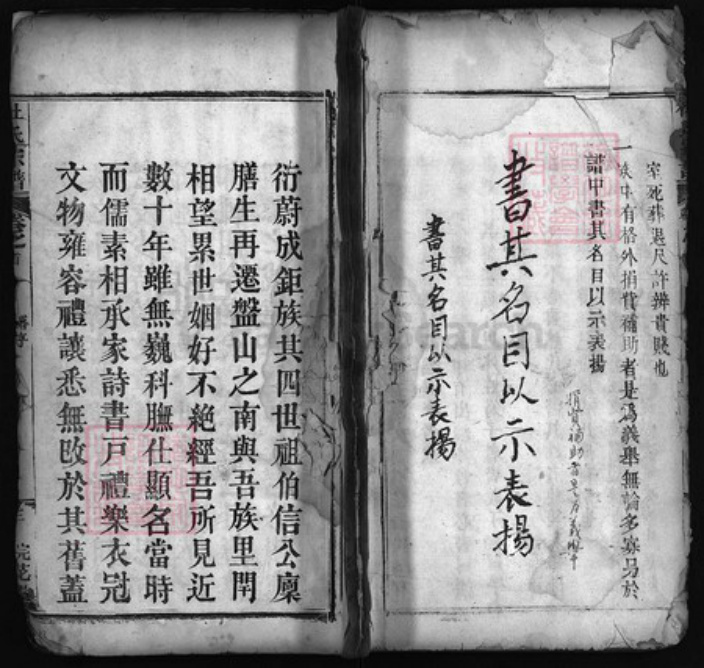 室死葬退尺許辨貴賤也
一族中有格外捐貲補助者是為義舉無論多寡另於
譜中書其名目以示表揚
捐貲補助者是為義舉
書其名目以示表揚
書其名目以示表揚
衍蔚成鉅族其四世祖伯信公廩
膳生再遷盤山之南與吾族里閈
相望累世姻好不絕經吾所見近
數十年雖無巍科膴仕顯名當時
而儒素相承家詩書戶禮樂衣冠
文物雍容禮讓悉無改於其舊蓋
杜氏宗譜
卷之首